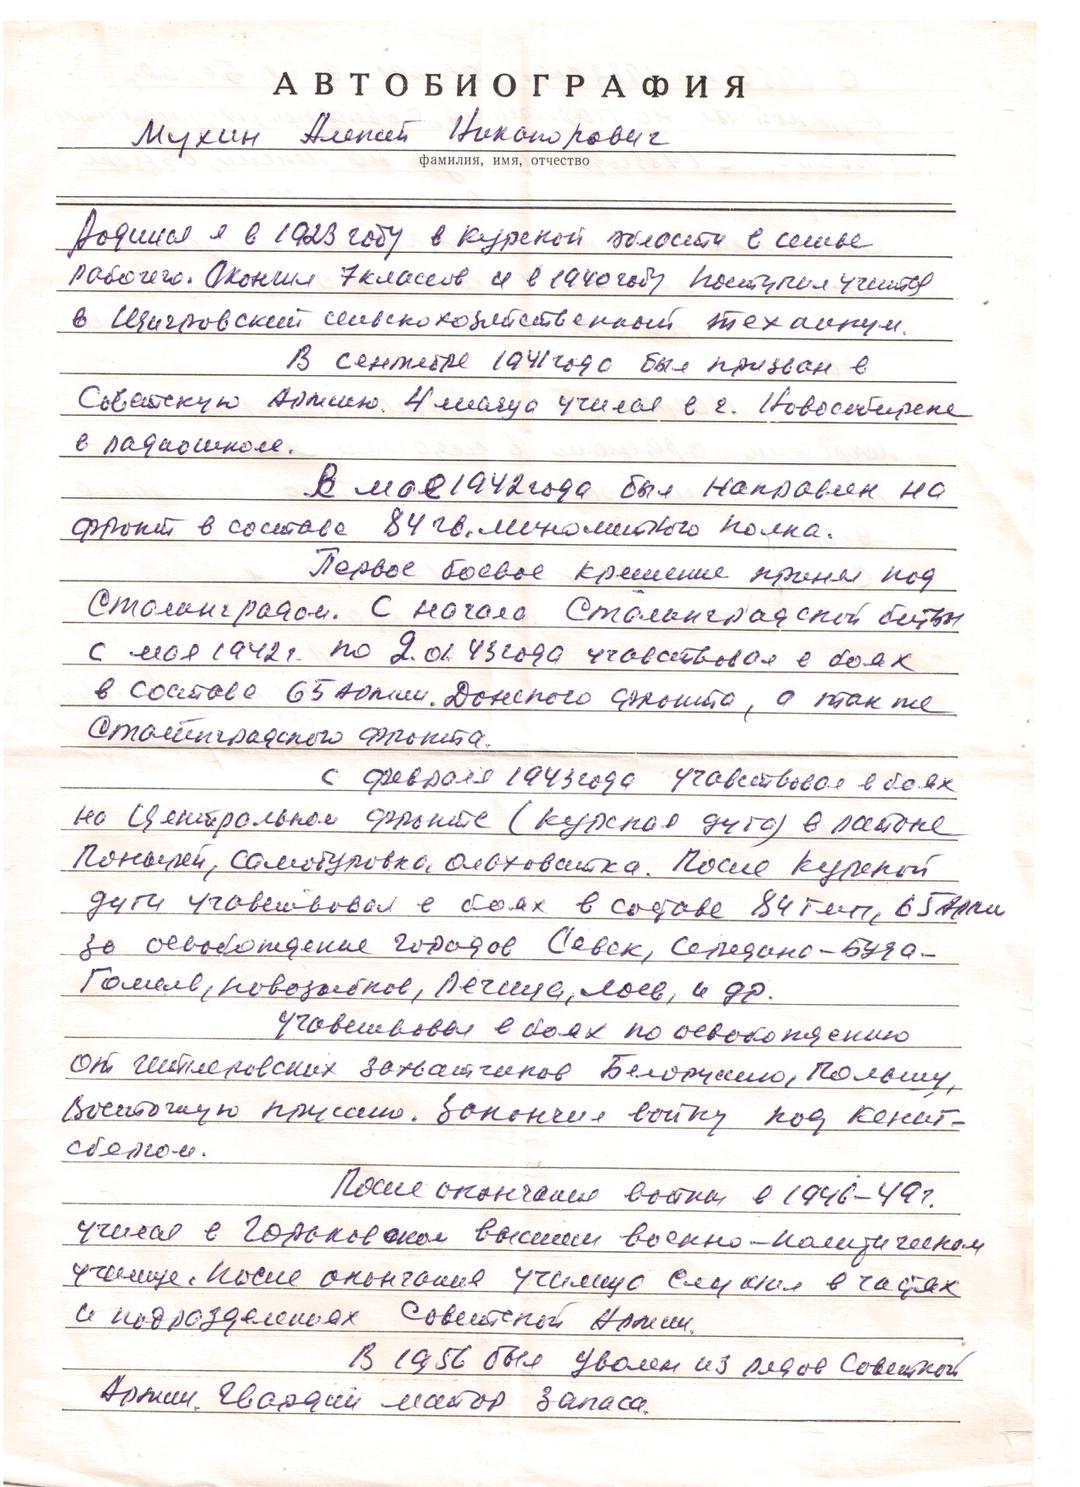 АВТОБИОГРАФИЯ
Мухин Алексей Никанорович
фамилия, имя, отчество
Родился я в 1923 году в Курской области в семье
рабочего. Окончил 7 классов и в 1940 году поступил учится
в Щигровский сельскохозяйственный техникум.
В сентябре 1941 года был призван в
Советскую Армию. 4 месяца учился в г. Новосибирске
в радиошколе.
В мае 1942 года был направлен на
фронт в составе 84 гв. минометного полка.
Первое боевое крещение принял под
Сталинградом. С начала Сталинградской битвы
с мая 1942 г. по 2.01.43 года учавствовал в боях
в составе 65 Армии. Донского фронта, а так же
Сталинградского фронта.
С февраля 1943 года учавствовал в боях
на Центральном фронте (Курская дуга) в районе
Понырей, Самодуровка, Ольховатка. После Курской
дуги учавствовал в боях в составе 84 Гмп, 65 Арми
за освобождение городов Севск, Середино-Буда-
Гомель, Новозыбков, Речица, Лоев, и др.
Учавствовал в боях по освобождению
от гитлеровских захватчиков Белоруссию, Польшу,
Восточную Прусию. Закончил войну под Кениг-
сбергом.
После окончания войны в 1946-49 г.
учился в Горьковском высшем военно-политическом
училище. После окончания училища служил в частях
и подразделениях Советской Армии.
В 1956 был уволен из рядов Советской
Армии. Гвардии майор запаса.